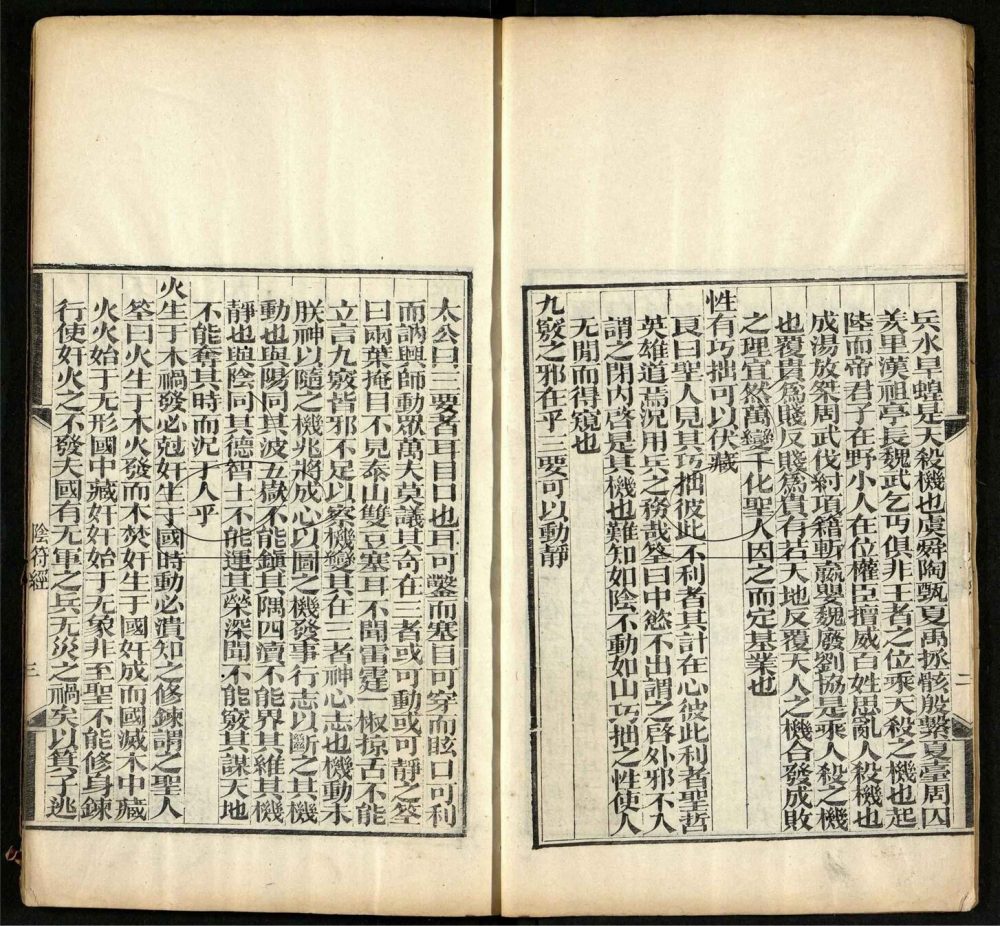 兵水旱蝗是天殺機也虞舜陶甄夏禹拯骸殷繫夏臺周囚
羑里漢祖亭長魏武乞丐俱非王者之位乘天殺之機也起
陸而帝君子在野小人在位權臣擅威百姓思亂人殺機也
成湯放桀周武伐紂項籍斬嬴嬰魏廢劉協是乘人殺之機
也覆貴爲賤反賤爲貴有若天地反覆天人之機合發成敗
之理宜然萬變千化聖人因之而定基業也
性有巧拙可以伏藏
良曰聖人見其巧拙彼此不利者其計在心彼此利者聖哲
英雄道焉況用兵之務哉筌曰中慾不出謂之啓外邪不入
謂之閉內啓是其機也難知如陰不動如山巧拙之性使人
无閒而得窺也
九竅之邪在乎三要可以動靜
二
太公曰三要者耳目口也耳可鑿而塞目可穿而眩口可利
而訥興師動眾萬夫莫議其奇在三者或可動或可靜之筌
曰兩葉掩目不見泰山雙豆塞耳不聞雷霆一椒掠舌不能
立言九竅皆邪不足以察機變其在三者神心志也機動未
朕神以隨之機兆將成心以圖之機發事行志以斷之其機
動也與陽同其波五嶽不能鎮其隅四瀆不能界其維其機
靜也與陰同其德智士不能運其榮深聞不能竅其謀天地
不能奪其時而況于人乎
火生于木禍發必剋奸生于國時動必潰知之修鍊謂之聖人
筌曰火生于木火發而木焚奸生于國奸成而國滅木中藏
火火始于无形國中藏奸奸始于无象非至聖不能修身鍊
行使奸火之不發夫國有无軍之兵无災之禍矣以箕子逃
陰符經
三